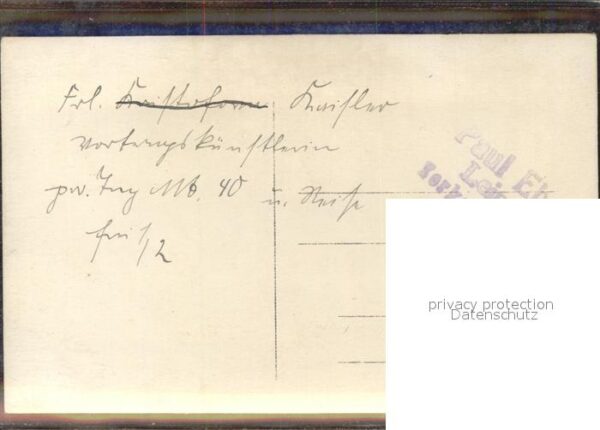 Frl. Kaisler
Vortragskünstlerin
pr. Tag Mk. 40 u. Reise
frei
Paul E
Lei
privacy protection
Datenschutz